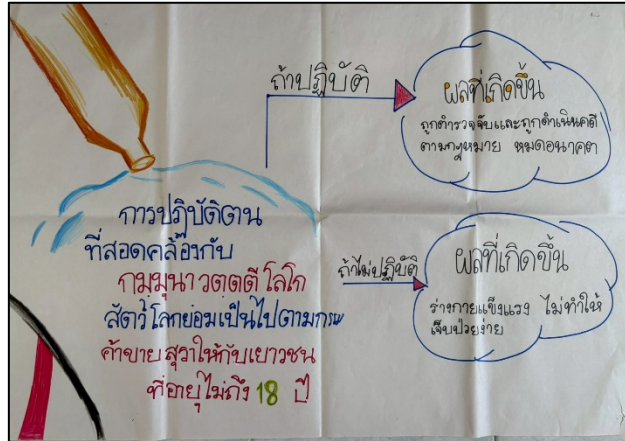 การปฏิบัติตน
ที่สอดคล้องกับ
กมฺมุนา วตตตี โลโก
สัตว์โลกย่อมเป็นไปตามกรรม
ค้าขายสุราให้กับเยาวชน
ที่อายุไม่ถึง 18 ปี
ถ้าปฏิบัติ
ผลที่เกิดขึ้น
ถูกตำรวจจับและถูกดำเนินคดี
ตามกฎหมาย หมดอนาคต
ถ้าไม่ปฏิบัติ
ผลที่เกิดขึ้น
ร่างกายแข็งแรง ไม่ทำให้
เจ็บป่วยง่าย